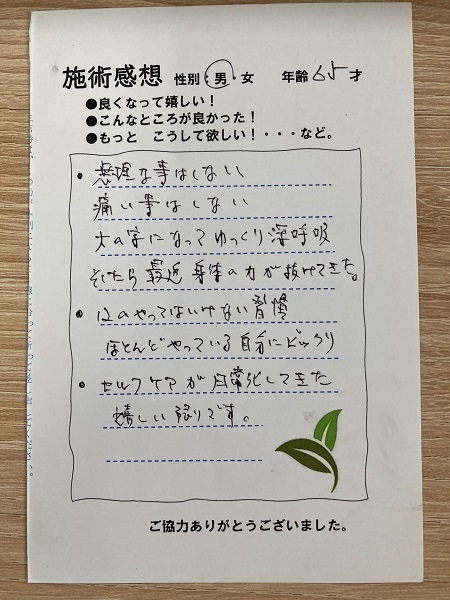 施術感想 性別:男・女 年齢 65才
●良くなって嬉しい!
●こんなところが良かった!
●もっと こうして欲しい!・・・など。
・無理な事はしない
痛い事はしない
大の字になってゆっくり深呼吸
そしたら最近身体の力が抜けてきた。
・12のやってはいけない習慣
ほとんどやっている自分にビックリ
・セルフケアが日常化してきた
嬉しい限りです。
ご協力ありがとうございました。